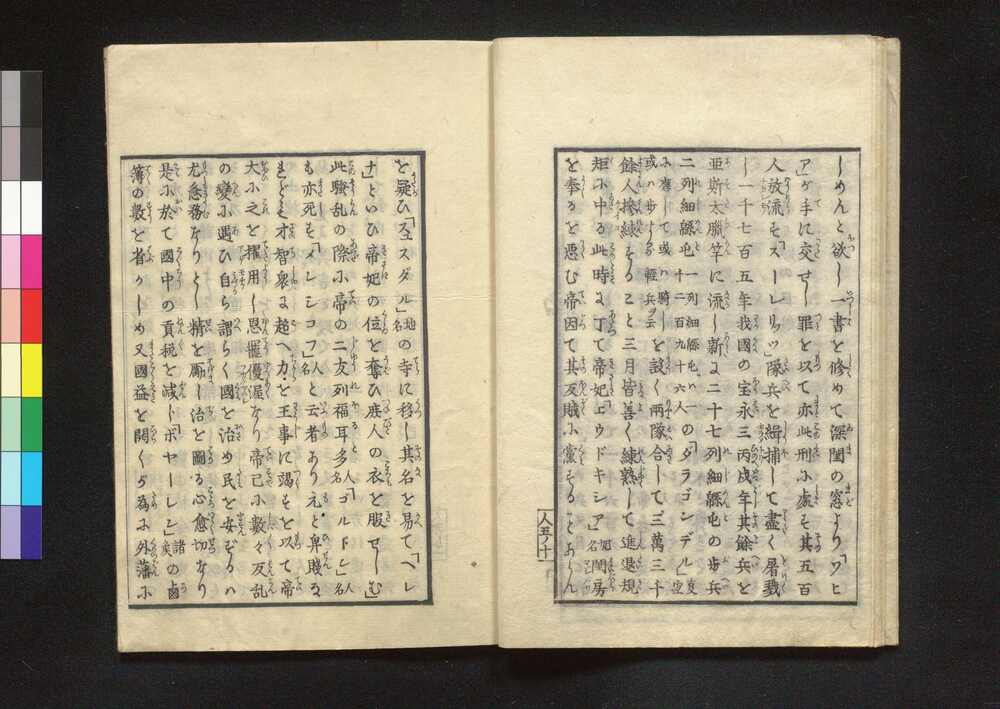 しめんと欲し一書を修めて深閨の窓より「ソヒ
ア」ガ手に交せし罪を以て亦此刑に處す其五百
人放流す「スーレリッツ」隊兵を緝捕して盡く屠戮
し一千七百五年我國の宝永三丙戌年其餘兵を
亜斯太臘竿に流し新に二十七列細緜屯の歩兵
二列細緜屯一列細緜屯ハ一千二百九十六人の「ダラゴンデル」
に應じて或ハ騎し或ハ歩する輕兵を云を設く兩隊合して三萬三千
餘人操練すること三月皆善く練熟して進退規
矩に中る此時に丁て帝妃「エウドキシア」妃名閨房
を奉るを惡む帝因て其反賊に黨することあらん
人五ノ十
を疑ひ「ススダル」地名の寺に移し其名を易て「ヘレ
ナ」といひ帝妃の位を奪ひ庶人の衣を服せしむ
此騷乱の際に帝の二友列福耳多人名「ゴルドン」人名
も亦死す「メレシコフ」人名と云者あり元と卑賤な
れども才智衆に越へ力を王事に竭すを以て帝
大に之を擢用し恩寵優渥なり帝已に數々反乱
の變に遇ひ自ら謂らく國を治め民を安ずるハ
尤急務なりとし精を厲し治を圖る心愈切なり
是に於て國中の貢税を減し「ボヤーレン」諸矦の鹵
簿の數を省かしめ又國益を開くが為に外藩に